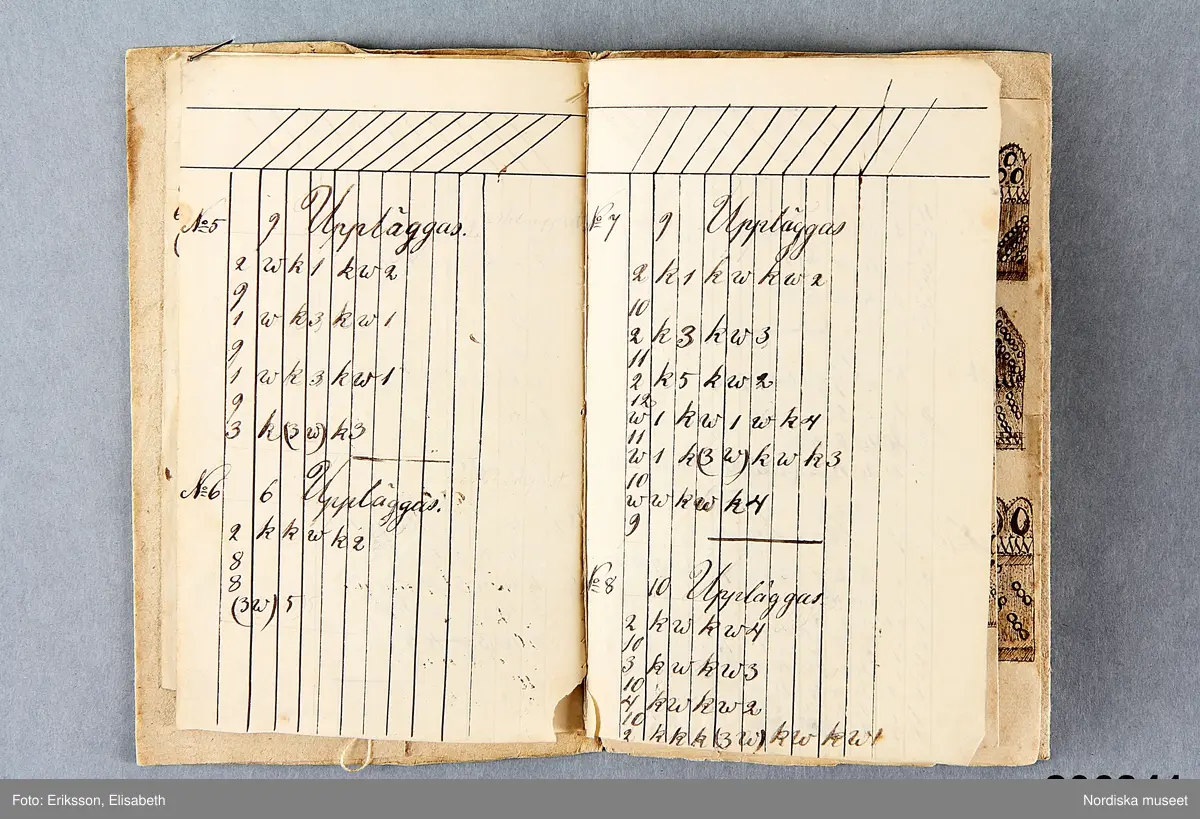 No 5 9 Uppläggas.
2 w k 1 k w 2
9
1 w k 3 k w 1
9
1 w k 3 k w 1
9
3 k (3 w) k 3
No 6 6 Uppläggas.
2 k k w k 2
8
8
(3w) 5
No 7 9 Uppläggas
2 k 1 k w k w 2
10
2 k 3 k w 3
11
2 k 5 k w 2
12
w 1 k w 1 w k 4
11
w 1 k (3 w) k w k 3
10
w w k w k 4
9
No 8 10 Uppläggas
2 k w k w 4
10
3 k w k w 3
10
4 k w k w 2
10
2 k k k (3 w) k w k w 1
Foto: Eriksson, Elisabeth
Nordiska museet